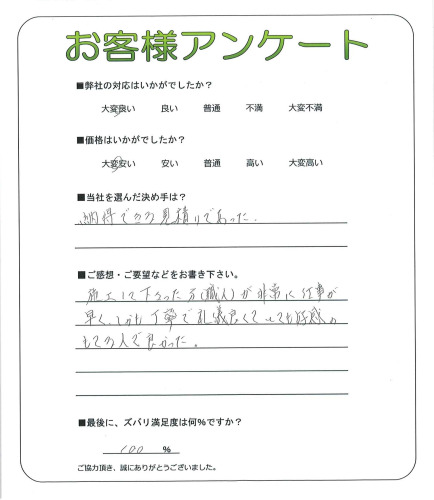 お客様アンケート
■弊社の対応はいかがでしたか？
大変良い 良い 普通 不満 大変不満
■価格はいかがでしたか？
大変安い 安い 普通 高い 大変高い
■当社を選んだ決め手は？
納得できる見積りであった.
■ご感想・ご要望などをお書き下さい。
施工して下さった方(職人)が非常に仕事が
早く、しかも丁寧で礼儀良くとても好感の
もてる人で良かった。
■最後に、ズバリ満足度は何%ですか？
100 %
ご協力頂き、誠にありがとうございました。